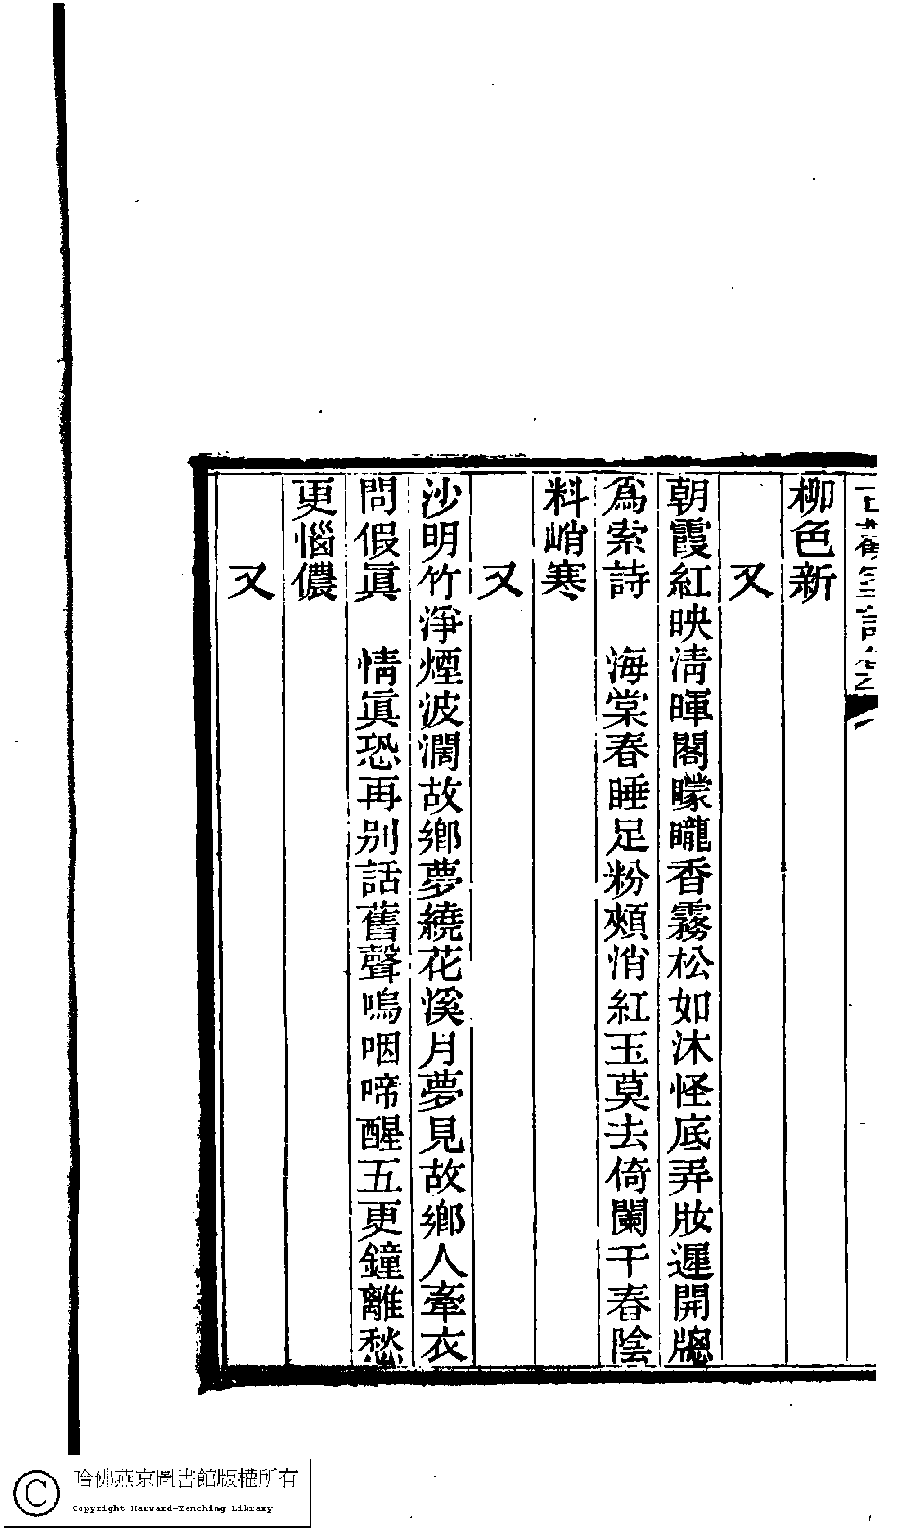 柳色新
又
朝霞紅映清暉閣曚曨香霧松如沐怪底弄妝遲開牕
爲索詩　海棠春睡足粉頰消紅玉莫去倚闌干春陰
料峭寒
又
沙明竹淨煙波濶故鄉夢繞花溪月夢見故鄉人牽衣
問假眞　情眞恐再别話舊聲嗚咽啼醒五更鐘離愁
更惱儂
又
哈佛燕京圖書館版權所有
Copyright Harvard-Yenching Library